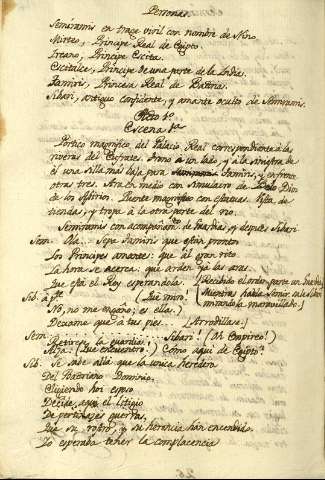 Personas.
Semíramis en trage viril con nombre de Nino.
Mirteo, Príncipe Real de Egipto.
Ircano, Príncipe Escita.
Escitalce, Príncipe de una parte de la India.
Tamiri, Princesa Real de Batria.
Sibari, antiguo confidente, y amante oculto de Semíramis.
Acto 1º
Escena 1ª
Pórtico magnífico del Palacio Real correspondiente á las
riveras del Eufrates. Trono á un lado, y á la siniestra de
él una silla más baja para Tamiris, y enfrente
otras tres. Ara en medio con simulacro de Belo Dios
de los Asirios. Puente magnífico con estatuas. Vista de
tiendas, y tropa á la otra parte del río.
Semíramis con acompañamto. de Guardias, y después Sibari
Sem. Ola. Sepa Tamiris que están prontos
Los Príncipes amantes: que al gran rito
La hora se acerca: que arden ya las aras.
Que está el Rey esperándola.
Sib. á pte. Que miro!
No, no me engaño; es ella.)
Dexame que á tus pies. (Arrodíllase.)
Sem. Sibari! (Oh Empireo!)
Retírese la guardia.
Alza. (Que encuentro.) Cómo aquí de Egipto?
Sib. Se supo allá que la única heredera
Del Bactriano Dominio,
Eligiendo hoi esposo
Decide, aquí el litigio
De pertinaces guerras,
Que su rostro, y su herencia han encendido.
Yo esperaba tener la complacencia